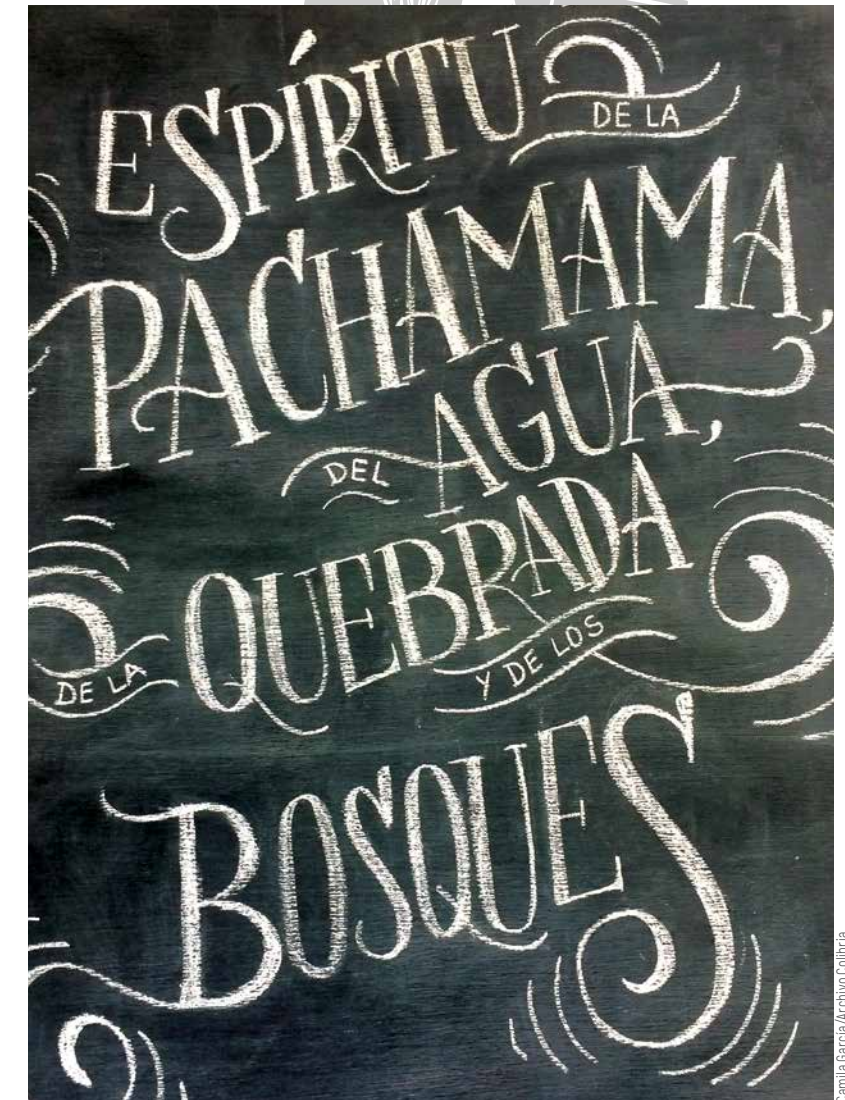 ESPÍRITU DE LA
PACHAMAMA,
DEL AGUA,
DE LA QUEBRADA Y DE LOS
BOSQUES
Camila García/Archivo Colibria